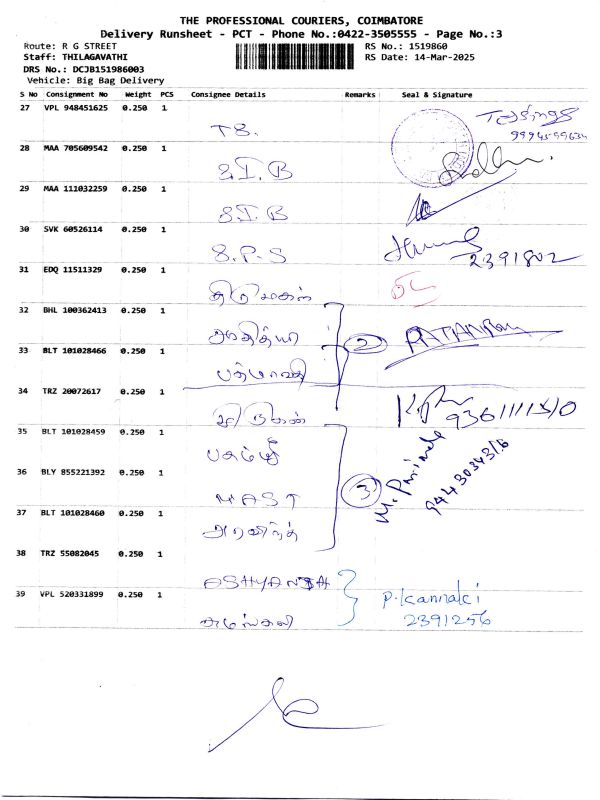 THE PROFESSIONAL COURIERS, COIMBATORE
Delivery Runsheet - PCT - Phone No.:0422-3505555 - Page No.:3
Route: R G STREET
RS No.: 1519860
Staff: THILAGAVATHI
RS Date: 14-Mar-2025
DRS No.: DCJB151986003
Vehicle: Big Bag Delivery
S No Consignment No Weight PCS Consignee Details Remarks Seal & Signature
27 VPL 948451625 0.250 1
T S.
28 MAA 705609542 0.250 1
S.I.B
29 MAA 111032259 0.250 1
S.I.B
30 SVK 60526114 0.250 1
S.P.S
2391802
31 EDQ 11511329 0.250 1
திருமகள்
32 BHL 100362413 0.250 1
ஆதித்யா
2
33 BLT 101028466 0.250 1
பத்மாவதி
34 TRZ 20072617 0.250 1
35 BLT 101028459 0.250 1
36 BLY 855221392 0.250 1
MAST
3
37 BLT 101028460 0.250 1
அரவிந்த்
38 TRZ 55082045 0.250 1
39 VPL 520331899 0.250 1
சுமங்கலி
P. Kannaki
2391256